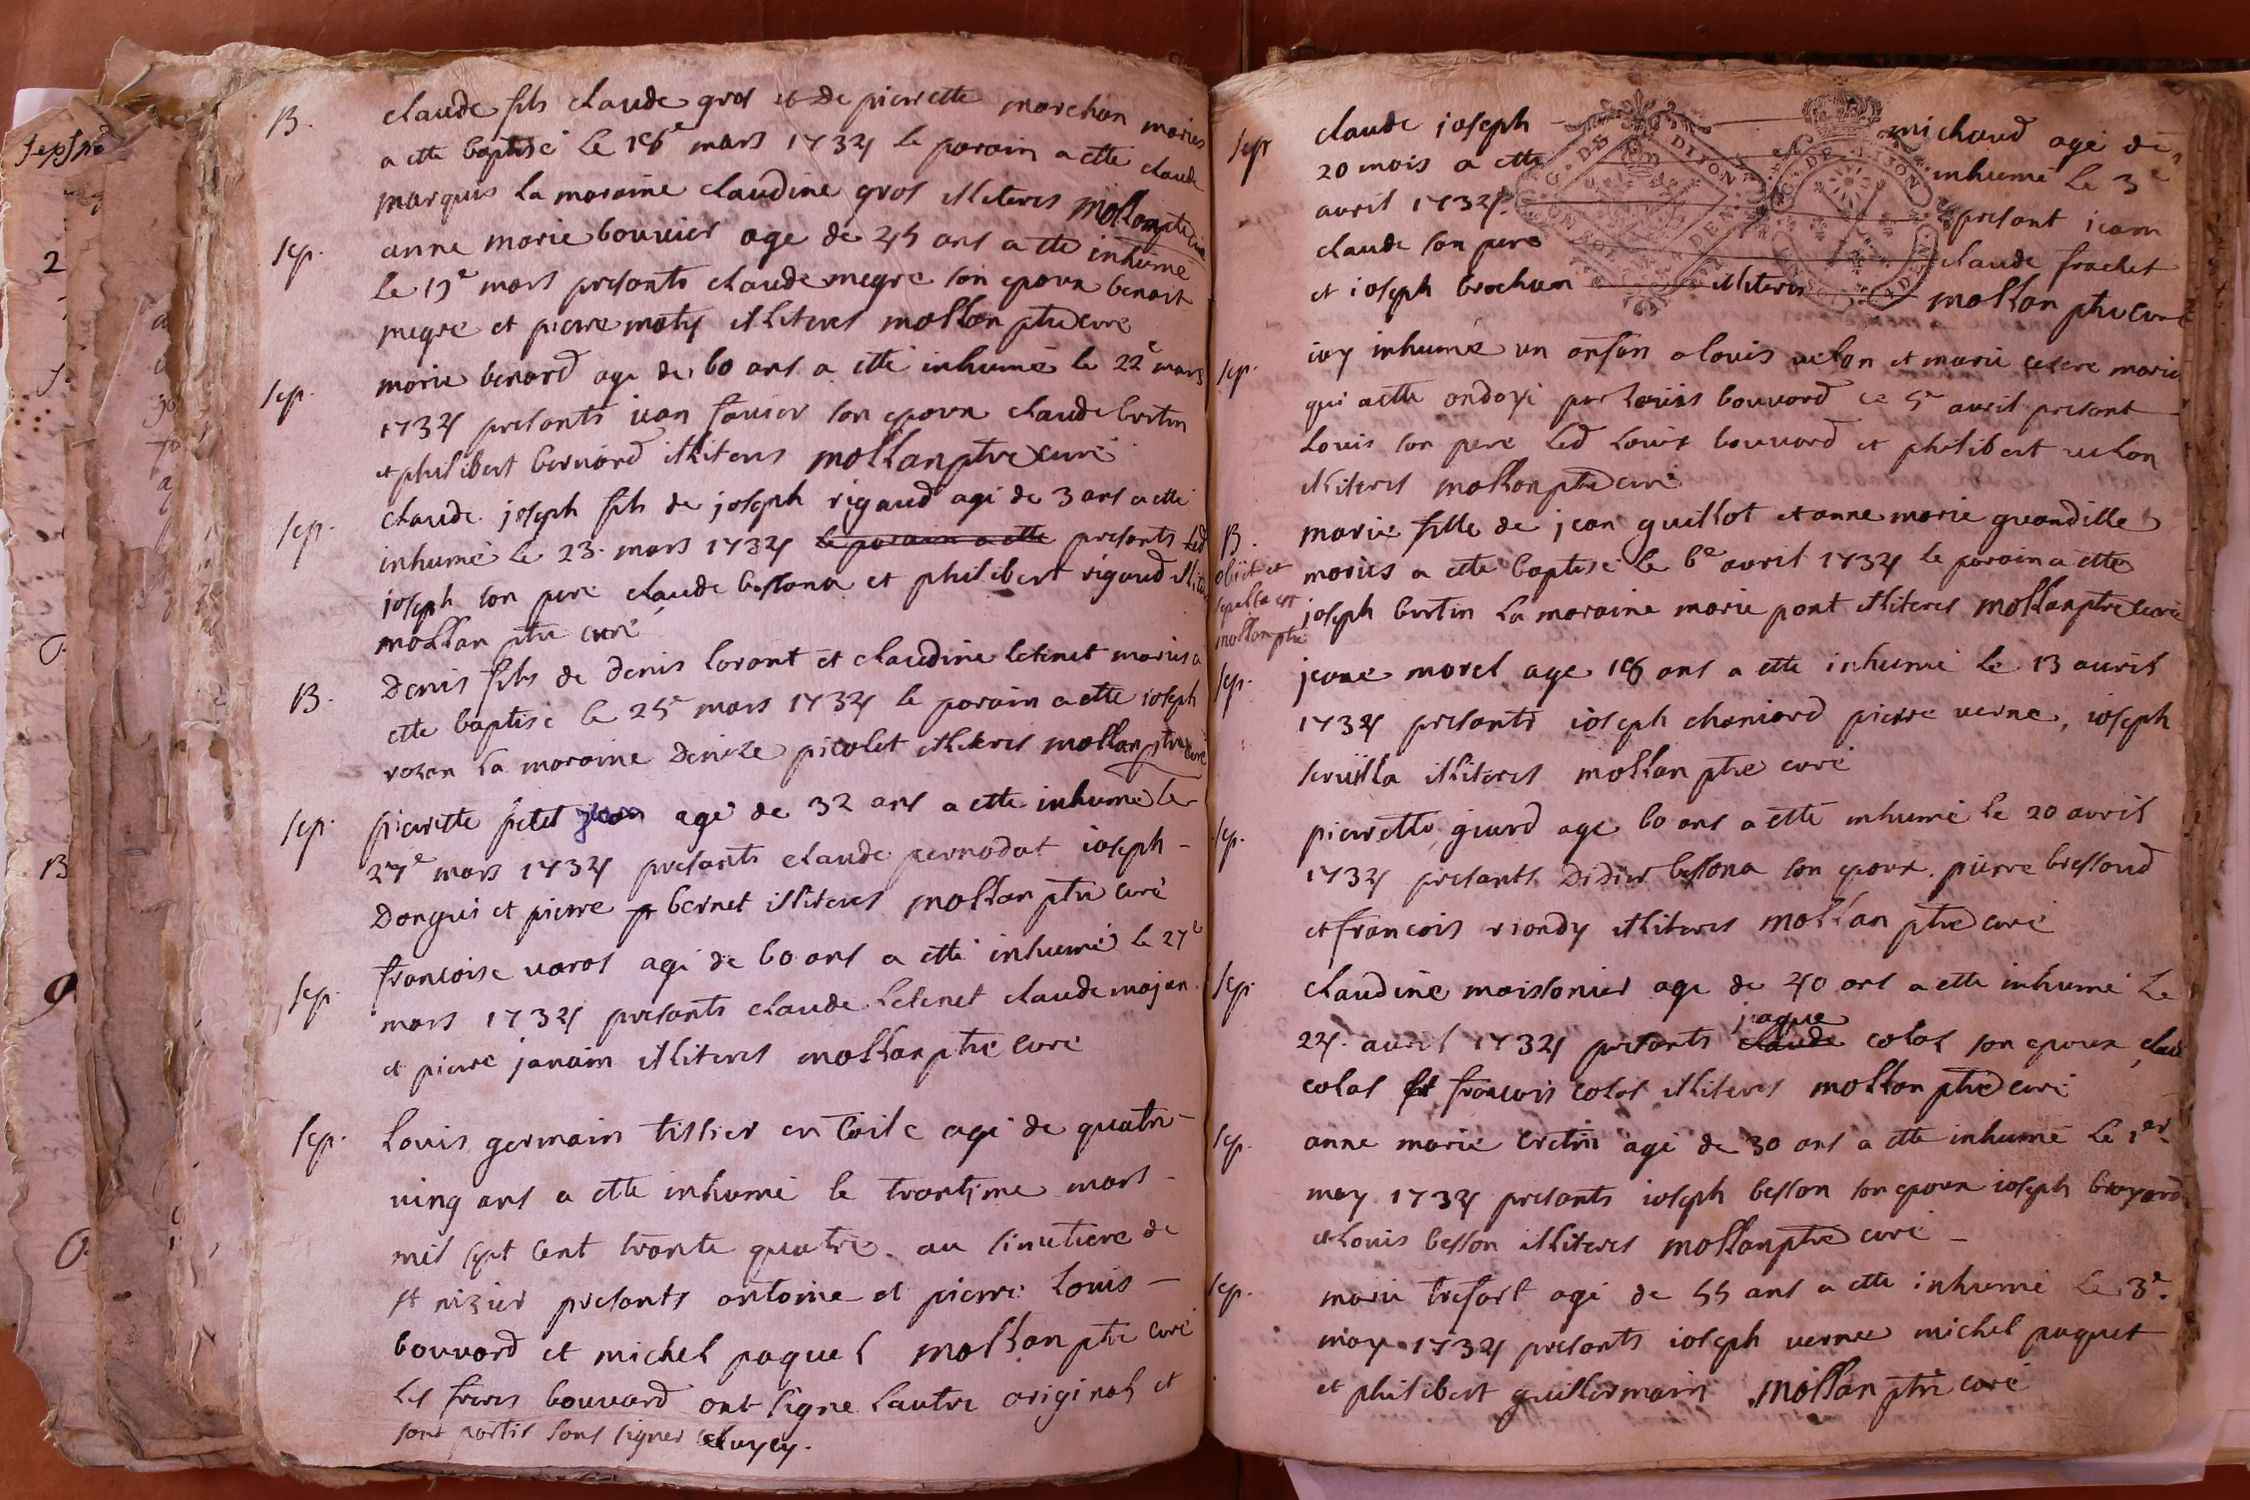 B. claude fils claude gros et de pierrette marchan mariés
a ette baptisé le 16e mars 1734 le parain a ette claude
marquis la maraine claudine gros illiteres mollan ptre curé
sep. anne marie bouvier age de 45 ans a ette inhumé
le 19e mars presants claude megre son epoux benoit
megre et pierre maty illiteres mollan ptre curé
sep. marie benard age de 60 ans a etté inhumé le 22e mars
1734 presants jean favier son epoux claude bertin
et philibert bernard illiteres mollan ptre curé
sep. claude joseph fils de joseph rigaud agé de 3 ans a etté
inhumé le 23. mars 1734 le parain a ette presants led
joseph son pere claude bessona et philibert rigaud
mollan ptre curé
B. Denis fils de denis lorant et claudine letenet mariés a
ette baptisé le 25e mars 1734 le parain a ette ioseph
rozan la maraine Denize picolet illiteres mollan ptre curé
sep. pierrette petit jean agé de 32 ans a ette inhumé le
27e mars 1734 presants claude pernodat ioseph -
Dongui et pierre bernet illiteres mollan ptre curé
sep. francoise varos agé de 60 ans a etté inhumé le 27e
mars 1734 presants claude letenet claude majan
et pierre janain illiteres mollan ptre curé
sep. Louis germain tissier en toile agé de quatre
ving ans a ette inhumé le trantime mars -
mil sept cent trante quatre. au simetiere de
st nizier presants antoine et pierre Louis -
bouvard et michel paquet mollan ptre curé
les freres bouvard ont signe lautre original et
sont partis sans signer celuycy.
sepr claude ioseph michaud agé de
20 mois a ette inhumé le 3e
avril 1734. presant iean
claude son pere claude frachet
et ioseph brochan illiteres mollan ptre curé
G. DE DIJON
G. DE DIJON
sep. iay inhumé un anfan a louis velon et marie cesere marié
qui a ette ondoyé par louis bouvard ce 5e avril presant
Louis son pere led louis bouvard et philibert velon
illiteres mollan ptre curé
B. marie fille de jean guillot et anne marie grandille
obiit et mariés a ette baptisé le 6e avril 1734 le parain a ette
sepulta est joseph bertin la maraine marie pont illiteres mollan ptre curé
mollan ptre
sep. jeane morel age 16 ans a ette inhumé le 13 avril
1734 presants ioseph chaniard pierre verne, ioseph
illiteres mollan ptre curé
sep. pierrette giard age 60 ans a etté inhumé le 20 avril
1734 presants Didier bessona son epoux. pierre bressoud
et francois riondy illiteres mollan ptre curé
sep. claudine maissonier age de 40 ans a ette inhumé le
jaque
24. avril 1734 presants claude colas son epoux claude
colas et francois colas illiteres mollan ptre curé
sep. anne marie cretin agé de 30 ans a ette inhumé le 1er
may 1734 presants ioseph besson son epoux ioseph broyard
et louis besson illiteres mollan ptre curé -
sep. marie trefort agé de 55 ans a ette inhumé le 3e.
may 1734 presants ioseph vernee michel paquet
et philibert guillermain mollan ptre curé